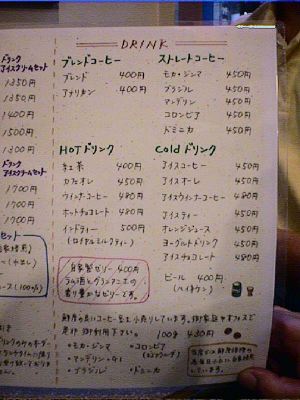 DRINK
ドリンク
アイスクリームセット
1350円
1350円
1400円
1500円
1300円
ドリンク
アイスクリームセット
1700円
1700円
1700円
セット
ブレンドコーヒー
ブレンド 400円
アメリカン 400円
ストレートコーヒー
モカ・ジンマ 450円
ブラジル 450円
マンデリン 450円
コロンビア 450円
ドミニカ 450円
HOTドリンク
紅茶 400円
カフェオレ 450円
ウインナーコーヒー 480円
ホットチョコレート 480円
インドティー 500円
(ロイヤルミルクティー)
Coldドリンク
アイスコーヒー 450円
アイスオーレ 450円
アイスウインナーコーヒー 480円
アイスティー 450円
オレンジジュース 450円
ヨーグルトドリンク 450円
アイスチョコレート 480円
ビール 400円
(ハイネケン)
自家製ゼリー 400円
ラム酒とグランマニエの
香り豊かなゼリーです。
鮮度の良いコーヒー豆を小売りしています。御家庭やオフィスで
是非御利用下さい。 100g 430
・モカ・ジンマ ・コロンビア
・マンデリン・G1
・ブラジル ・ドミニカ